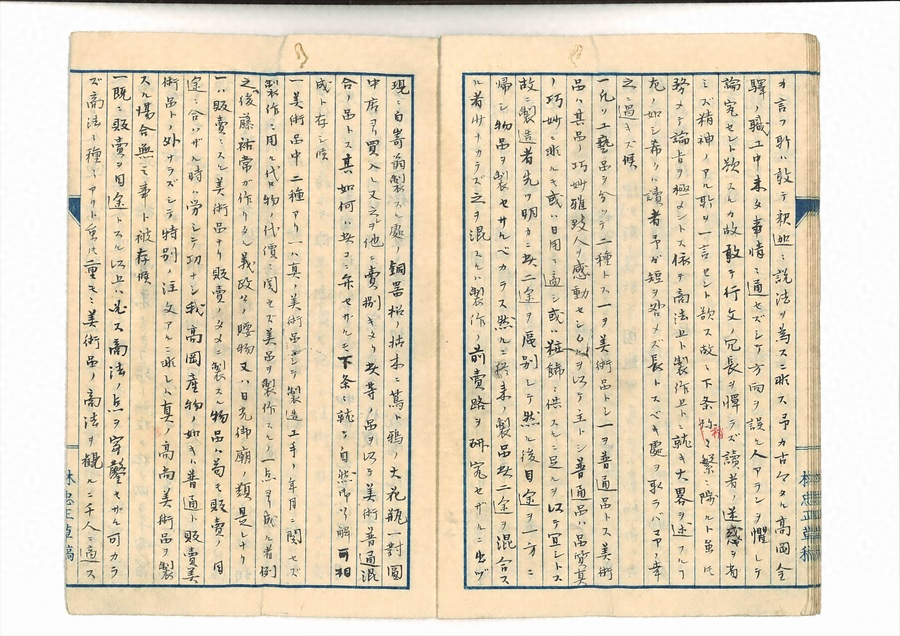 オ言フ所ハ敢テ釈迦ニ説法ヲ為スニ非ス予カ古クタル高岡全
驛ノ職工中未タ事情ニ通セズシテ方向ヲ誤ル人アランヲ懼レテ
論究セント欲スルカ故敢テ行文ノ冗長ヲ憚ラズ読者ノ迷惑ヲ省
ミズ精神ノアル所ヲ一言セント欲ス故ニ下条稍々繁ニ渉ルト雖モ
務メテ論旨ヲ極メントス依テ商法上ト製作上トニ就キ大畧ヲ述フル
左ノ如シ希クハ読者予ガ短ヲ咎メズ長トスベキ處ヲ取ラバ予ノ幸
之ニ過キズ候
一凡ソ工藝品ヲ分ツテ二種トス一ヲ美術品トシ一ヲ普通品トス美術
品ハ其品ノ巧妙雅致人ヲ感動センムルヲ以テ主トシ普通品ハ品質其
ノ巧妙ニ非ルモ或ハ日用ニ適シ或ハ粧飾ニ供スルニ足ルヲ以テ宜シトス
故ニ製造者先ツ明カニ此二途ヲ區別シテ然ル後目途ヲ一方ニ
帰シ物品ヲ製セサルベカラス然ルニ従来ノ製品此二途ヲ混合ス
ル者少ナカラズ之ヲ混スルハ製作ノ前賣路ヲ研究セサルニ出ヅ
現ニ白嵜翁製スル處ノ銅器松ノ枯木ニ蔦ト鴉ノ大花瓶一對圓
中店ヨリ買入レ又之ヲ他ニ賣捌キタリ此等ノ品ヲ以テ美術普通混
合ノ品トス其如何ハ此コニ弁セザルモ下条ニ就テ自然御了解可相
成ト存シ候
一美術品中二種アリ一ハ真ノ美術品ニシテ製造工手ノ年月ニ関セズ
製作ニ用ル代物ノ代價ニ関セズ美品ヲ製作スルノ一点ヨリ成ル者例
之後藤祐常ガ作リタル義政公ノ腰物又ハ日光御廟ノ類是レナリ
一ハ販賣ニスル美術品ナリ販賣ノタメニ製スル物品ハ苟モ販賣ノ目
途ニ合ハザル時ハ労シテ功ナシ我高岡産物ノ如キハ普通ト販賣美
術品トノ外ナラズシテ特別ノ注文アルニ非レハ真ノ高尚美術品ヲ製
スル場合無之事ト被存候
一既ニ販賣ヲ目途トスル以上ハ必ス商法ノ点ヲ穿鑿セザル可カラ
ズ商法ニ種々アリト雖モ重モニ美術品ノ商法ヲ観ルニ千人ニ適ス
林忠正草稿
林忠正草稿